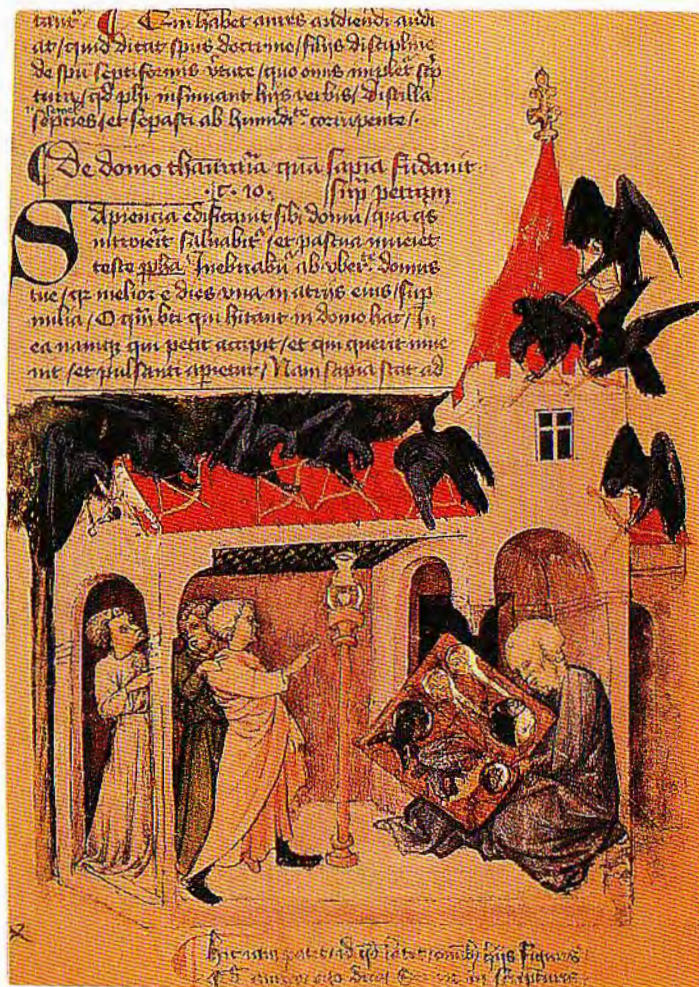 ¶ Qui habet aures audiendi audi
at / quid dicat spus doctrine / filijs discipline
de spu septiformis vtute / quo omis implet scp
tura / qd phi insinuant hijs verbis / Distilla
septies / et sepasti ab humidi corrupente /.
¶ De domo thesauraria qua sapia fudauit
.C. 10. sup petram
Sapiencia edificauit sibi domu / qua qs
introierit saluabit / et pascua inueiet
teste pha Inebriabu ab vber domus
tue / qr melior e dies vna in atrijs eius / sup
milia / O qm bti qui hitant in domo hac / In
ea namqz qui petit accipit / et qui querit inue
nit / et pulsanti apietur / Nam sapia stat ad
hijs figuris
in scripturis